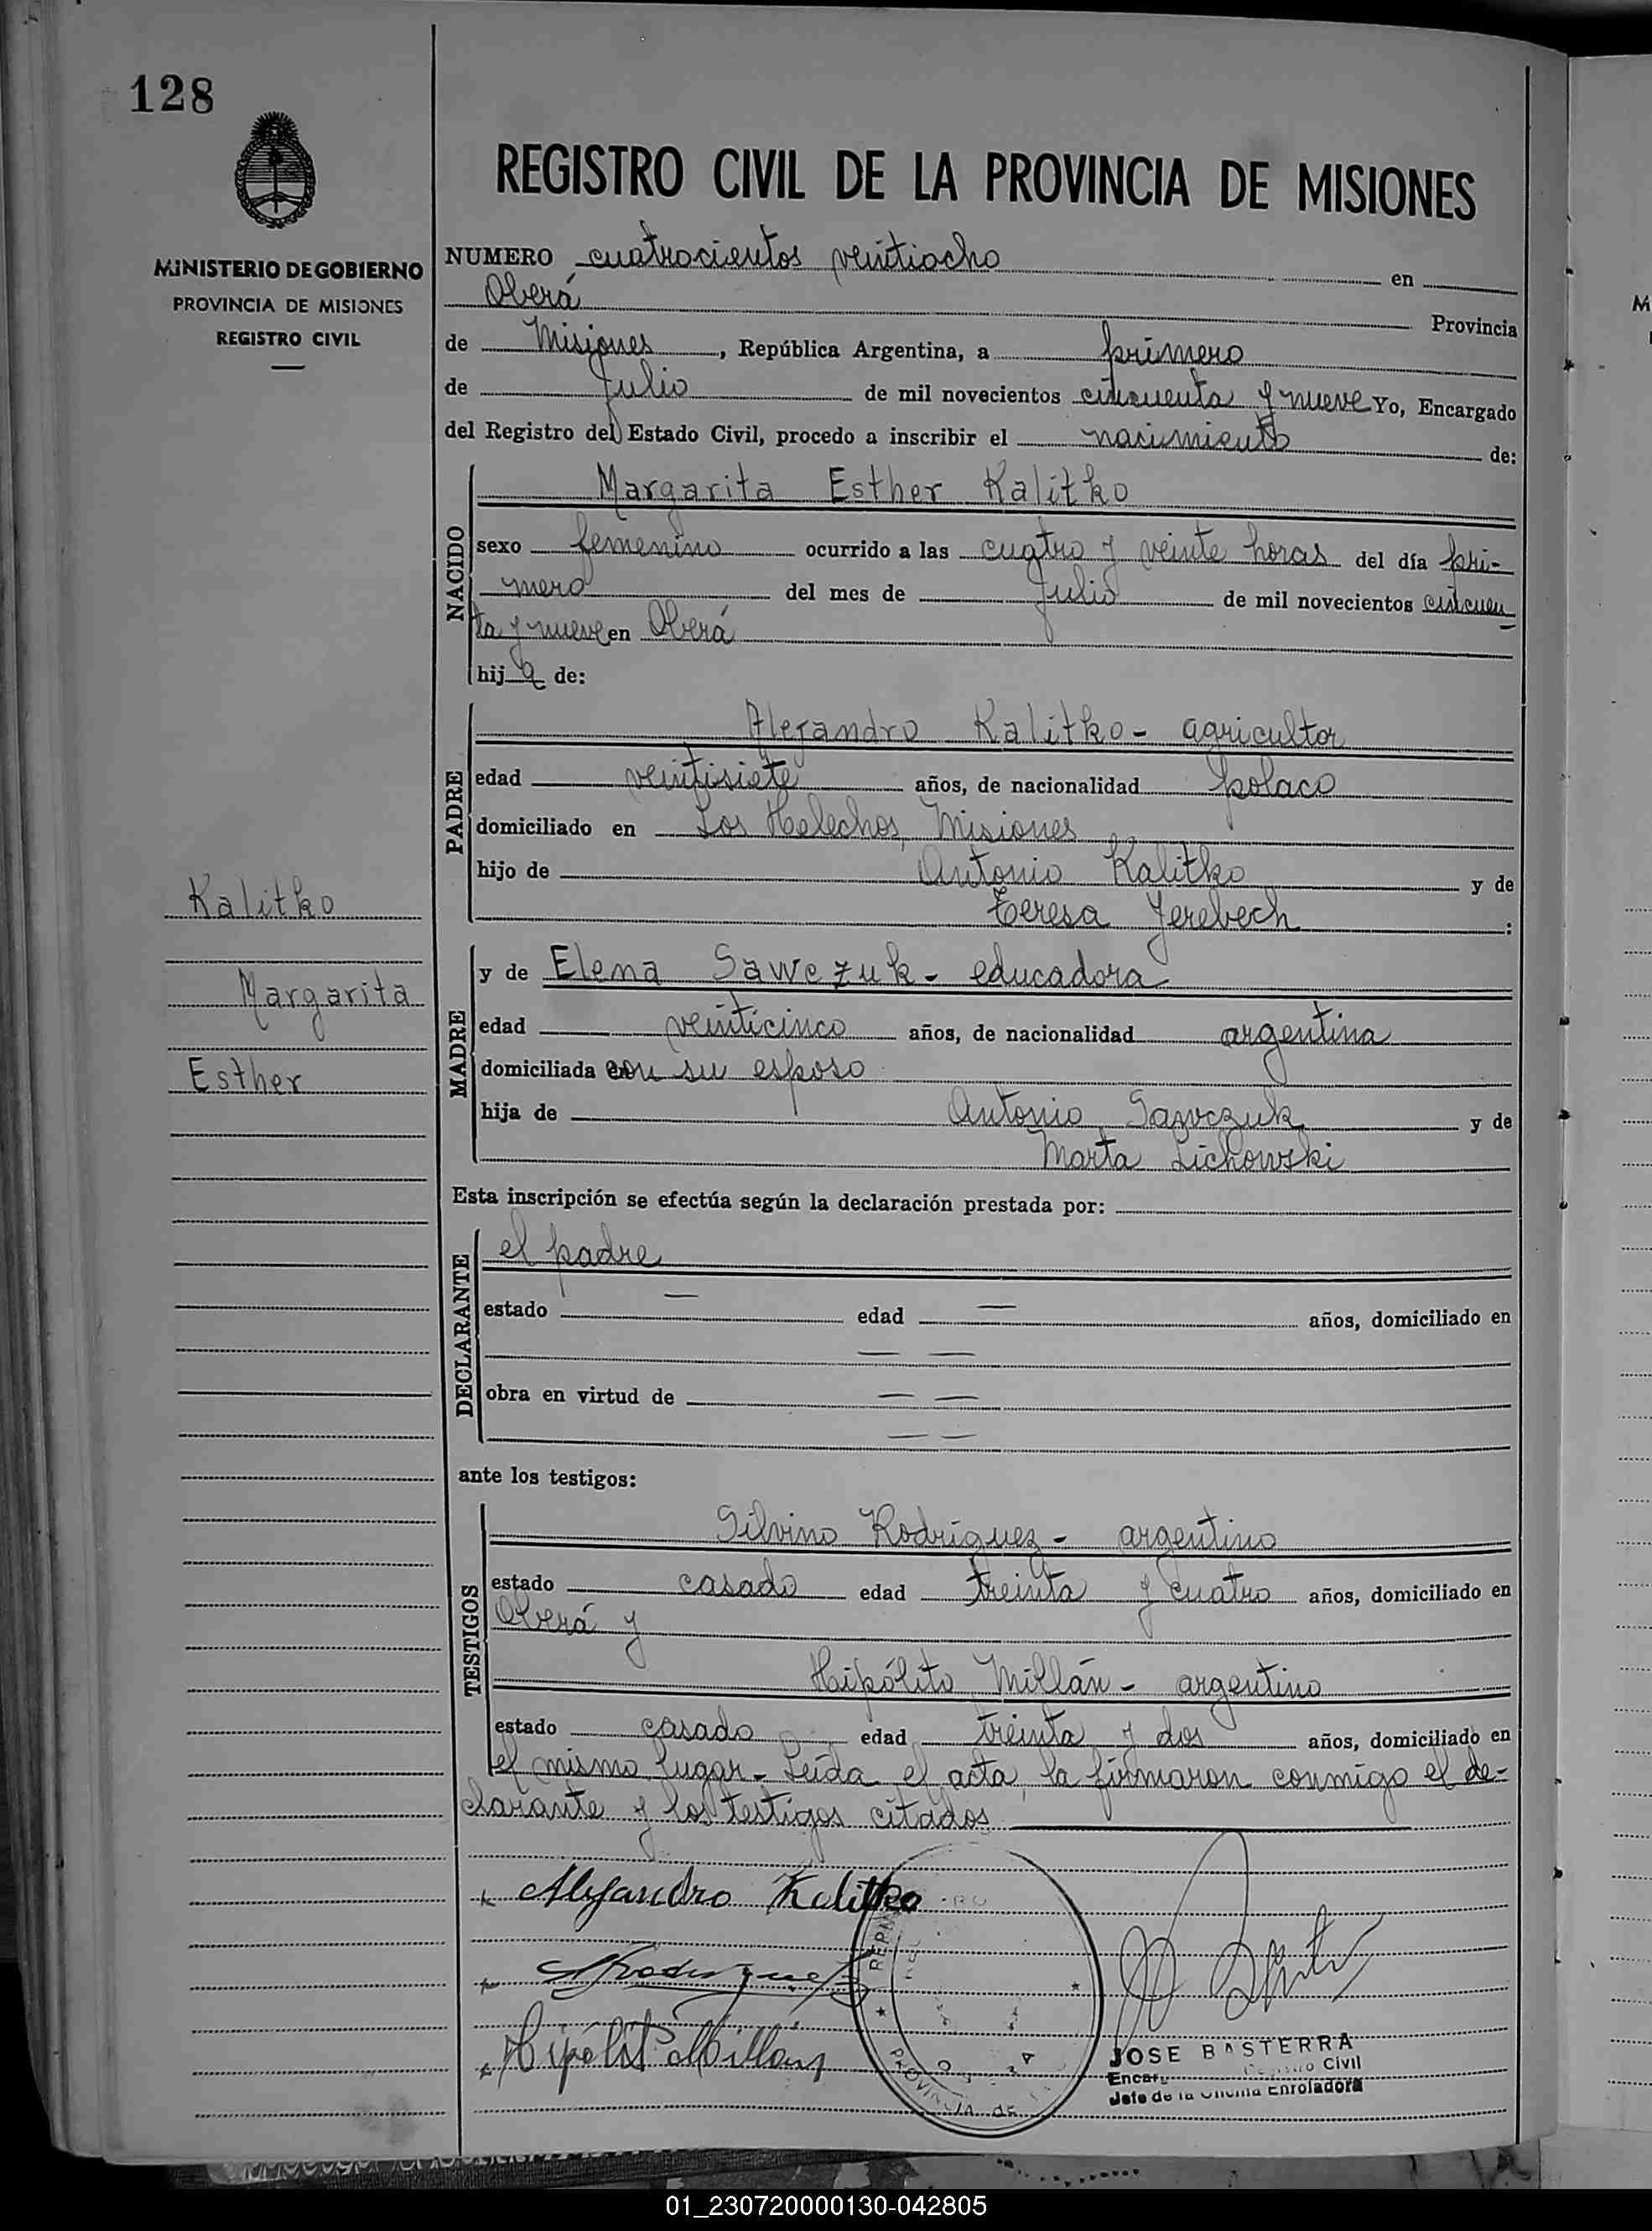 128
MINISTERIO DE GOBIERNO
PROVINCIA DE MISIONES
REGISTRO CIVIL
Kalitko
Margarita
Esther
REGISTRO CIVIL DE LA PROVINCIA DE MISIONES
NUMERO cuatrocientos veintiocho en
Oberá Provincia
de Misiones, República Argentina, a primero
de Julio de mil novecientos cincuenta y nueve Yo, Encargado
del Registro del Estado Civil, procedo a inscribir el nacimiento de:
NACIDO
Margarita Esther Kalitko
sexo femenino ocurrido a las cuatro y veinte horas del día pri-
mero del mes de Julio de mil novecientos cincuen
ta y nueve en Oberá
hija de:
PADRE
Alejandro Kalitko - agricultor
edad veintisiete años, de nacionalidad polaco
domiciliado en Los Helechos, Misiones
hijo de Antonio Kalitko y de
Teresa Jerebech :
MADRE
y de Elena Sawczuk - educadora
edad veinticinco años, de nacionalidad argentina
domiciliada con su esposo
hija de Antonio Sawczuk y de
Marta Lichowski
Esta inscripción se efectúa según la declaración prestada por:
DECLARANTE
el padre
estado — edad — años, domiciliado en
— —
obra en virtud de — —
— —
ante los testigos:
TESTIGOS
Silvino Rodríguez - argentino
estado casado edad treinta y cuatro años, domiciliado en
Oberá y
Hipólito Millán - argentino
estado casado edad treinta y dos años, domiciliado en
el mismo lugar - Leída el acta, la firmaron conmigo el de-
clarante y los testigos citados
Alejandro Kalitko
SRodriguez
Hipólito Millán
PROVINCIA DE
JOSE BASTERRA
Civil
Jefe de la Oficina Enroladora
01_230720000130-042805